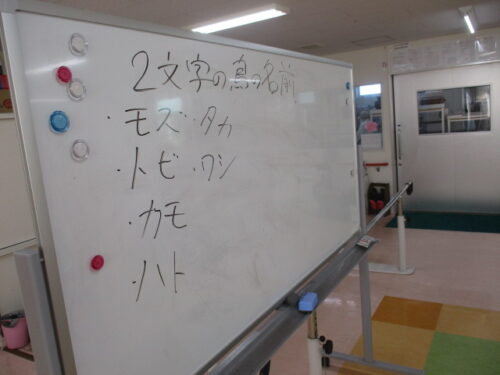 2文字の鳥の名前
・モズ・タカ
・トビ・ワシ
・カモ
・ハト